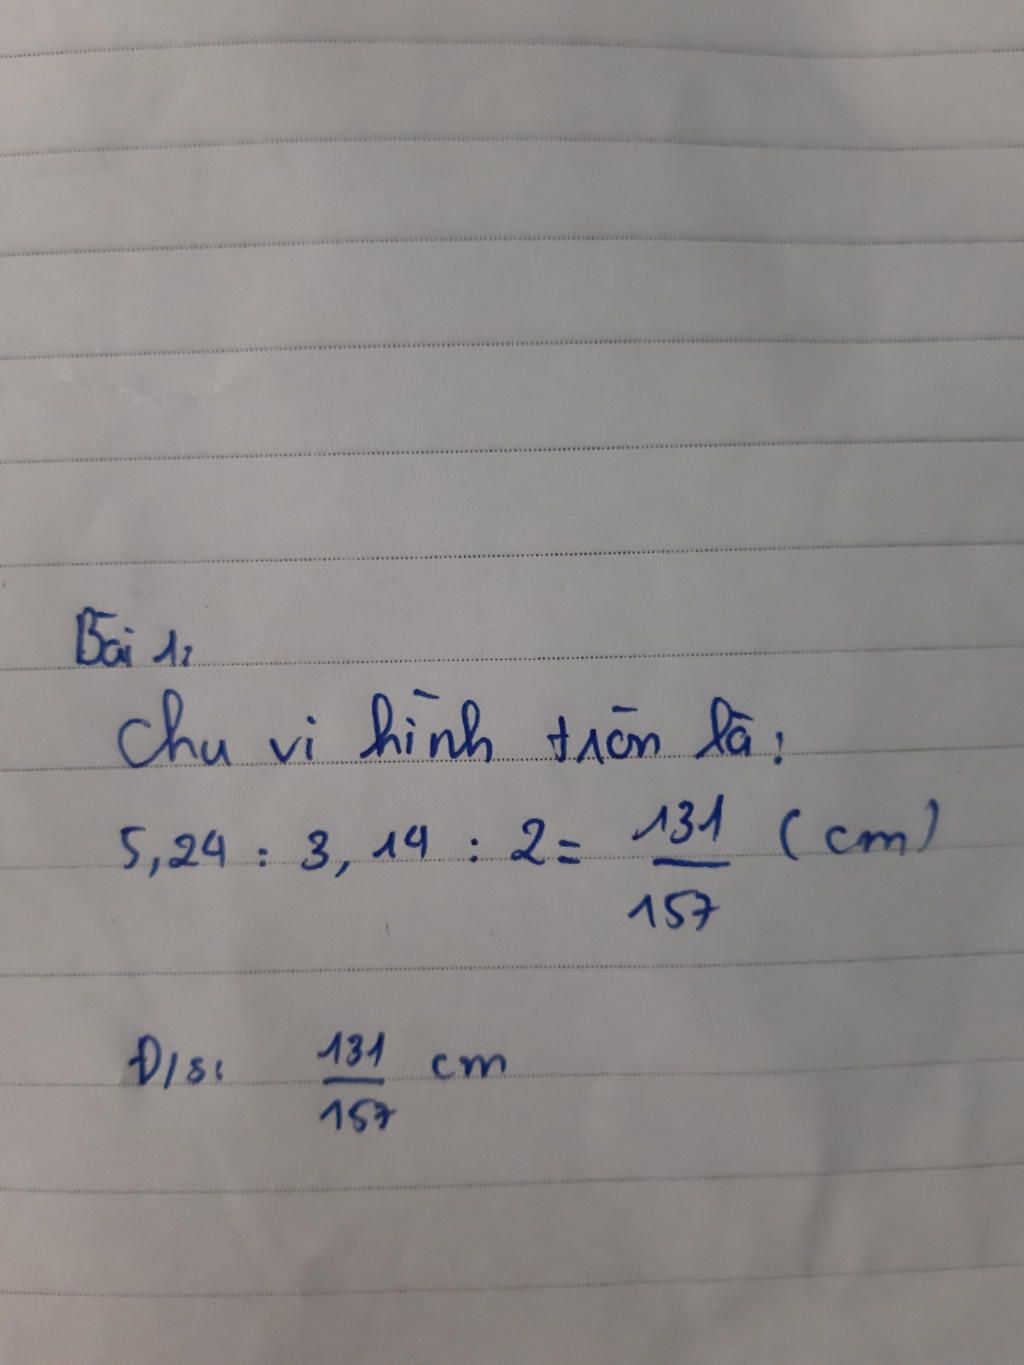 Bài 1:
Chu vi hình tròn là:
5,24 : 3,14 : 2 = 131/157 (cm)
Đ/s: 131/157 cm